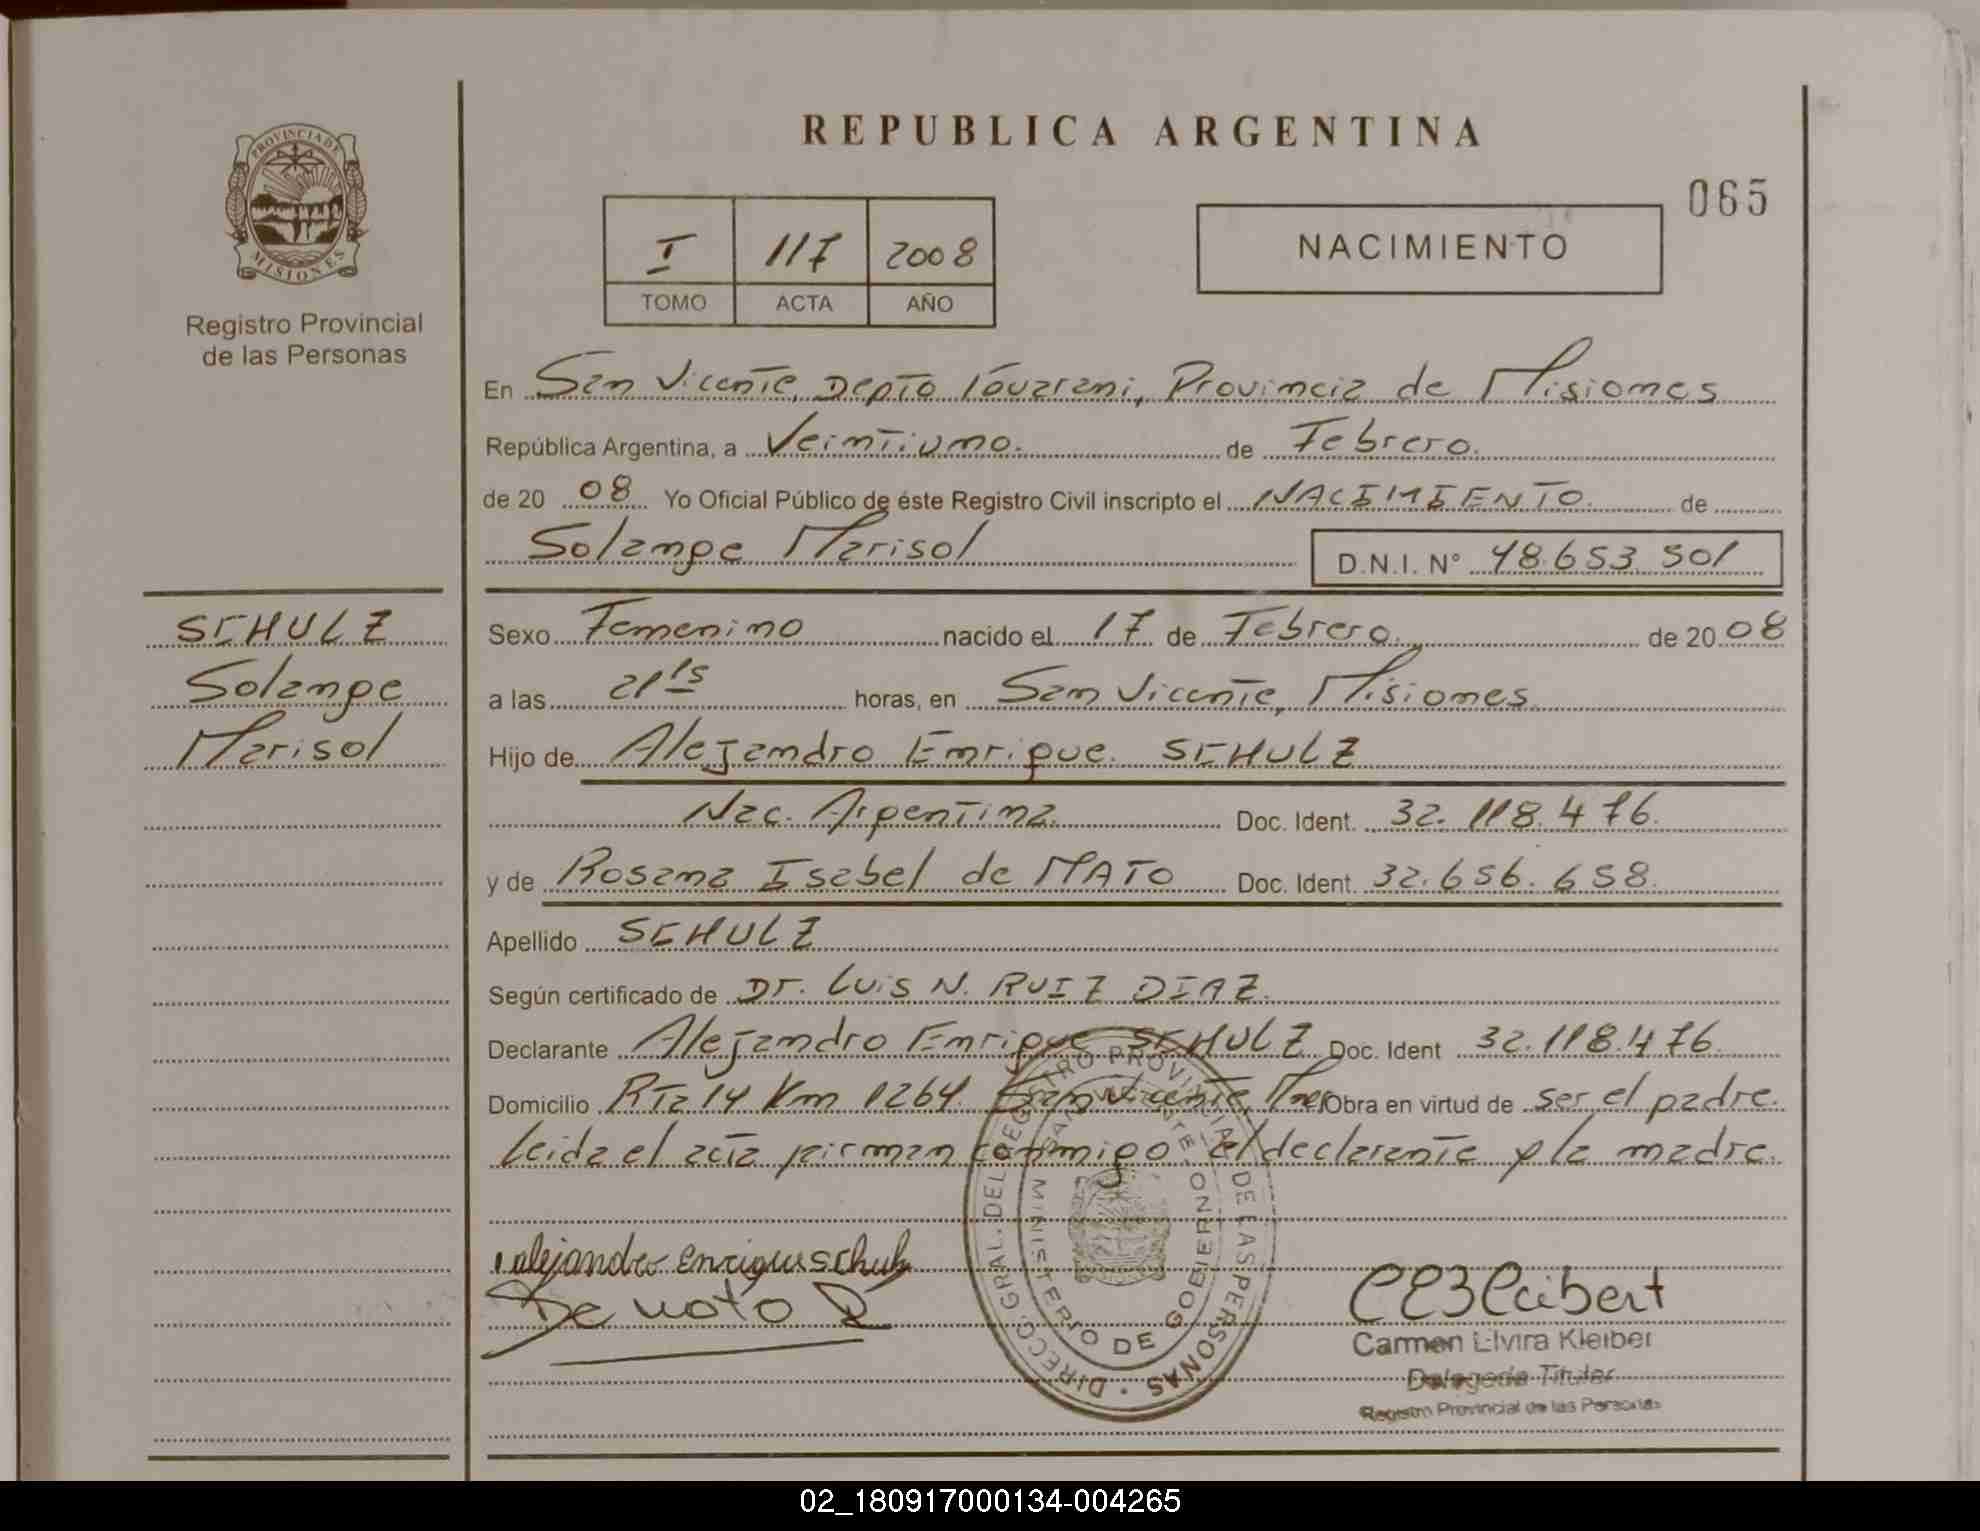 REPUBLICA ARGENTINA
065
PROVINCIA DE
MISIONES
Registro Provincial
de las Personas
I 117 2008
TOMO ACTA AÑO
NACIMIENTO
En San Vicente, Depto Guarani, Provincia de Misiones
República Argentina, a Veintiuno. de Febrero.
de 20 08 Yo Oficial Público de éste Registro Civil inscripto el NACIMIENTO. de
Solange Marisol D.N.I. N° 48.653.501
SCHULZ
Solange
Marisol
Sexo Femenino nacido el 17 de Febrero. de 20 08
a las 21 15 horas, en San Vicente, Misiones
Hijo de Alejandro Enrique. SCHULZ
Nac. Argentina. Doc. Ident. 32.118.476.
y de Rosana Isabel de MATO Doc. Ident. 32.656.658.
Apellido SCHULZ
Según certificado de Dr. Luis N. RUIZ DIAZ.
Declarante Alejandro Enrique SCHULZ Doc. Ident 32.118.476.
Domicilio Rta 14 Km 1264 San Vicente, Mnes Obra en virtud de ser el padre.
Leida el acta firman conmigo el declarante y la madre.
alejandro enrique schulz
DIRECC. GRAL. DEL REGISTRO PROVINCIAL DE LAS PERSONAS
MINISTERIO DE GOBIERNO
SAN VICENTE
Carmen Elvira Kleiber
Delegada Titular
Registro Provincial de las Personas
02_180917000134-004265